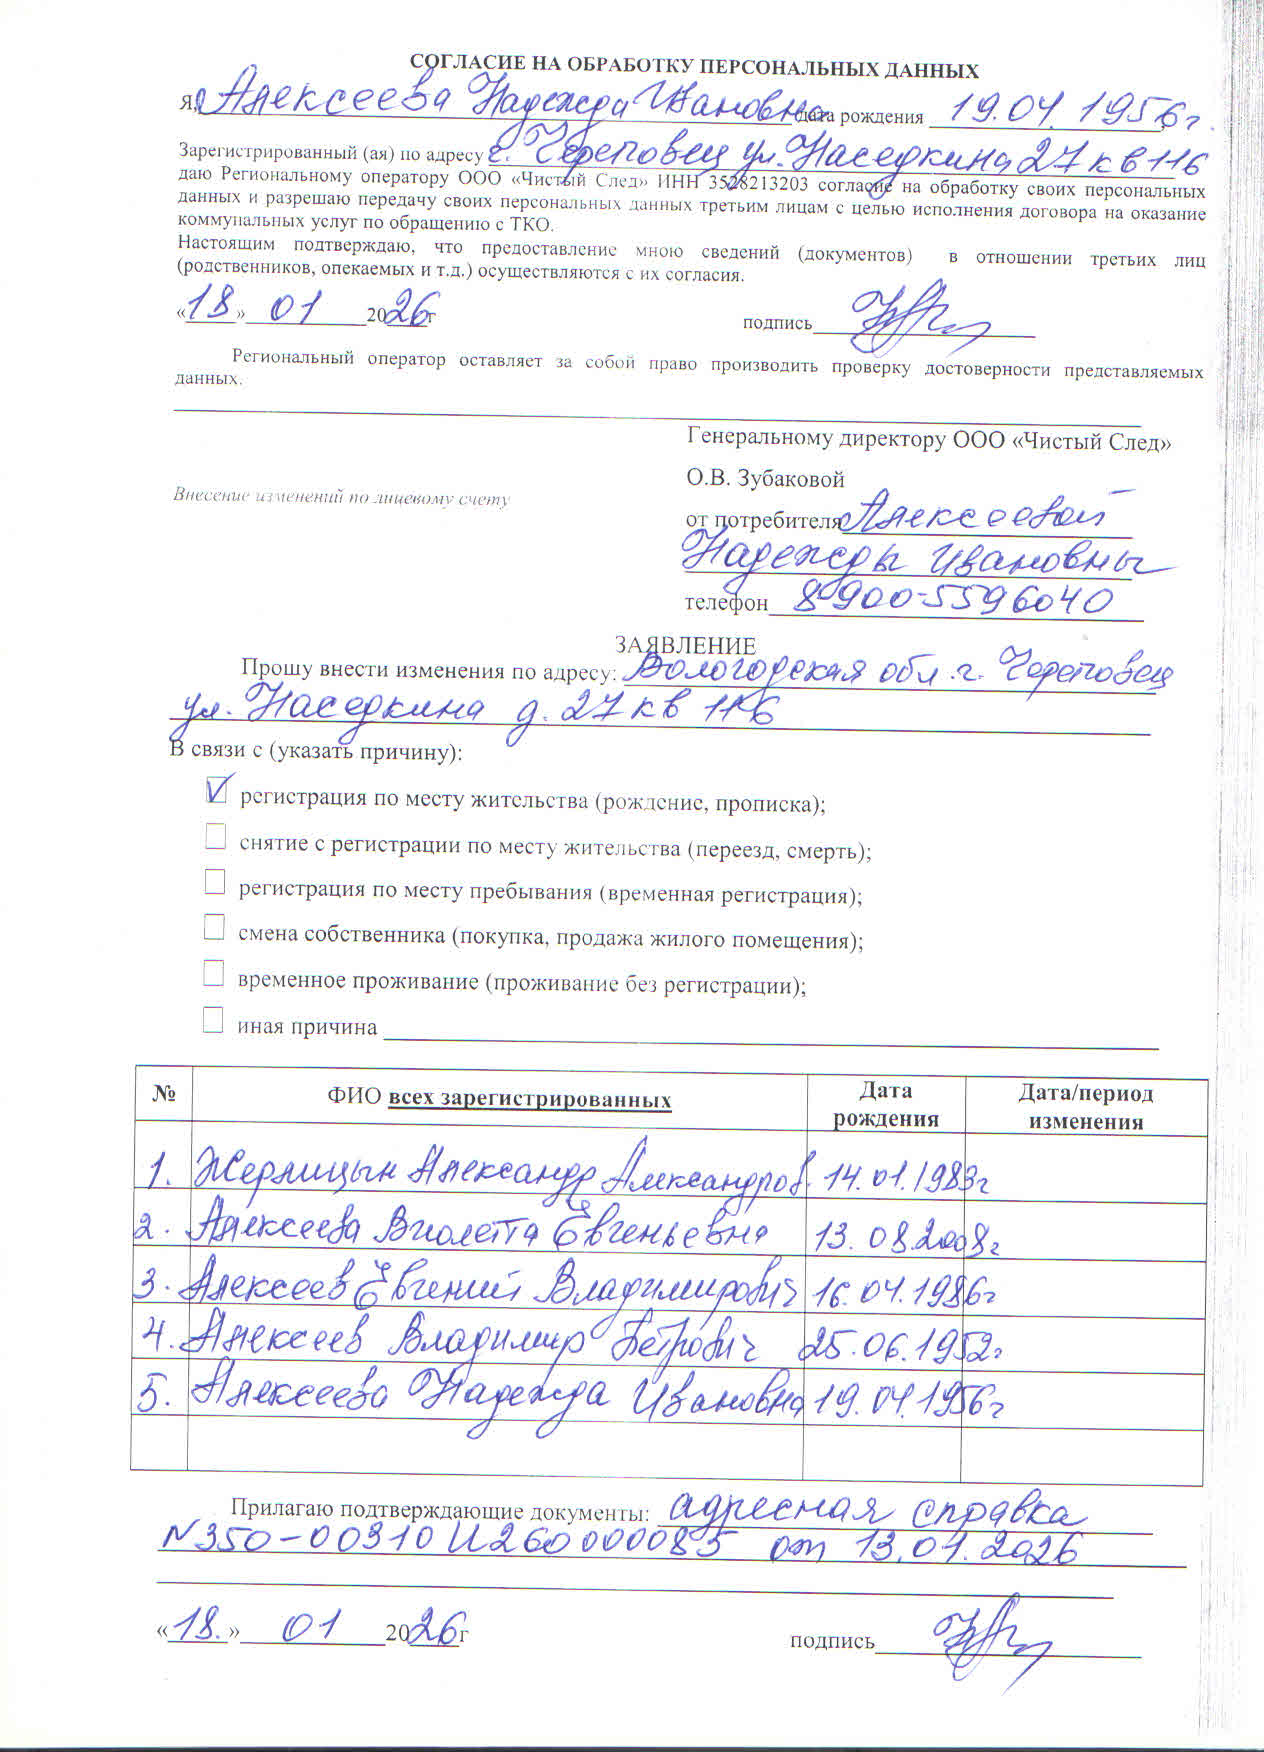 СОГЛАСИЕ НА ОБРАБОТКУ ПЕРСОНАЛЬНЫХ ДАННЫХ
Я, Алексеева Надежда Ивановна дата рождения 19.04.1956г.
Зарегистрированный (ая) по адресу г. Череповец ул. Наседкина 27 кв 116
даю Региональному оператору ООО «Чистый След» ИНН 3528213203 согласие на обработку своих персональных
данных и разрешаю передачу своих персональных данных третьим лицам с целью исполнения договора на оказание
коммунальных услуг по обращению с ТКО.
Настоящим подтверждаю, что предоставление мною сведений (документов) в отношении третьих лиц
(родственников, опекаемых и т.д.) осуществляются с их согласия.
«18» 01 2026г подпись
Региональный оператор оставляет за собой право производить проверку достоверности представляемых
данных.
Генеральному директору ООО «Чистый След»
О.В. Зубаковой
Внесение изменений по лицевому счету
от потребителя Алексеевой
Надежды Ивановны
телефон 8-900-5596040
ЗАЯВЛЕНИЕ
Прошу внести изменения по адресу: Вологодская обл. г. Череповец
ул. Наседкина д. 27 кв 116
В связи с (указать причину):
регистрация по месту жительства (рождение, прописка);
снятие с регистрации по месту жительства (переезд, смерть);
регистрация по месту пребывания (временная регистрация);
смена собственника (покупка, продажа жилого помещения);
временное проживание (проживание без регистрации);
иная причина
№ ФИО всех зарегистрированных Дата рождения Дата/период изменения
1. Жерлицын Александр Александров. 14.01.1983г
2. Алексеева Виолетта Евгеньевна 13.08.2008г
3. Алексеев Евгений Владимирович 16.04.1986г
4. Алексеев Владимир Петрович 25.06.1952г
5. Алексеева Надежда Ивановна 19.04.1956г
Прилагаю подтверждающие документы: адресная справка
N350-00310И260000085 от 13.01.2026
«18.» 01 2026г подпись